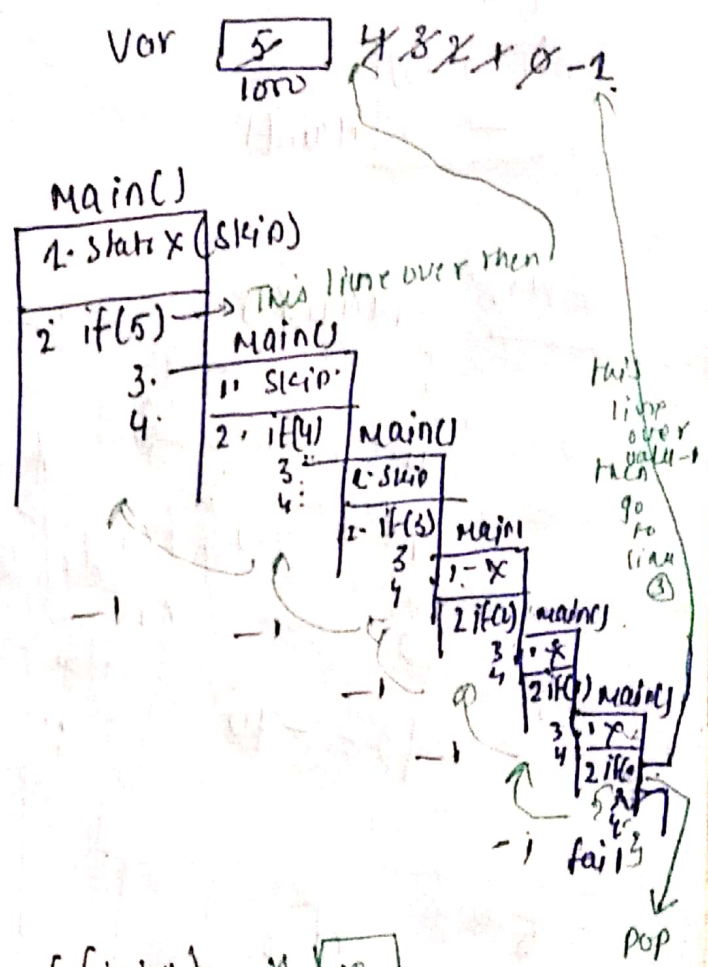 Var 5 4 3 2 1 0 -1
1000
Main()
1. Static X (Skip)
2 if(5) → This line over then
3.
4.
Main()
1. Skip
2. if(4)
3
4:
Main()
1. Skip
2. if(3)
3
4
Main
1. - X
2 if(2)
3
4
Main()
1. X
2 if(1)
3
4
Main()
1 X
2 if(0
this
line
over
value-1
then
go
to
line
③
-1
-1
-1
-1
-1
fail
POP